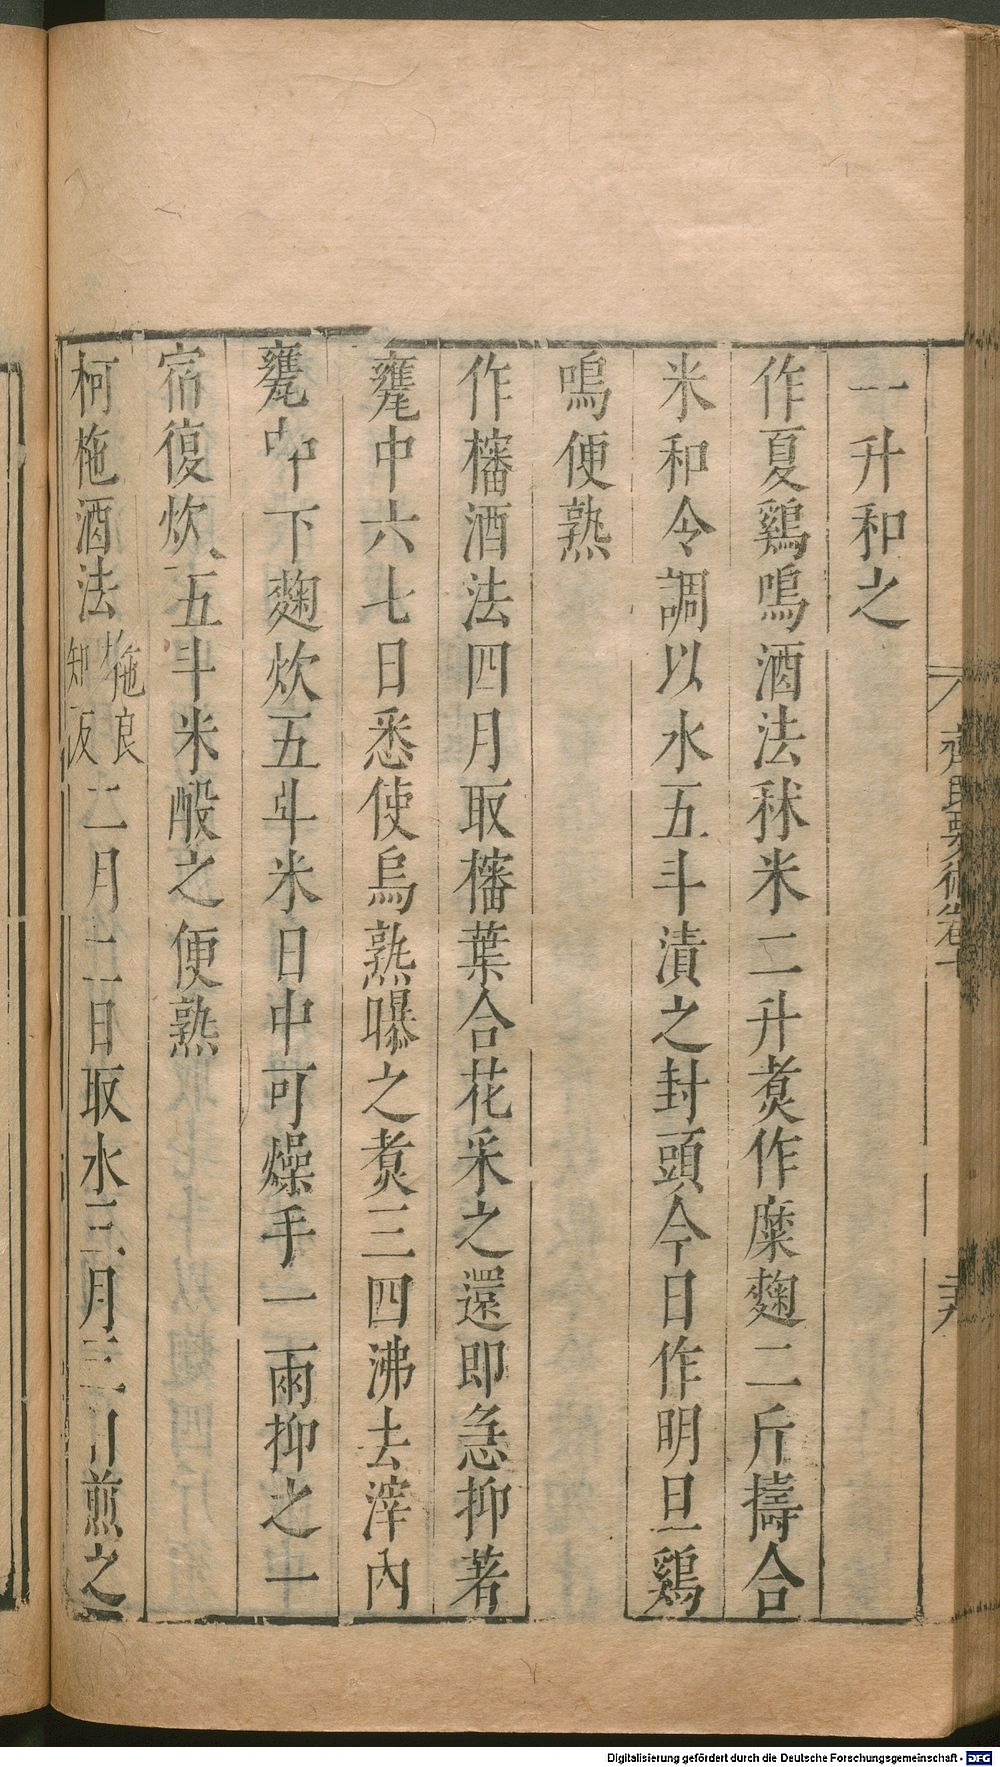 一升和之
作夏鷄鳴酒法秫米二升煑作糜麴二斤擣合
米和令調以水五斗漬之封頭今日作明旦鷄
鳴便熟
作櫁酒法四月取櫁葉合花采之還即急抑著
甕中六七日悉使烏熟曝之煑三四沸去滓內
甕中下麴炊五斗米日中可燥手一兩抑之一
宿復炊五斗米酘之便熟
柯柂酒法柂良知反二月二日取水三月三日煎之
齊民要術卷七
Digitalisierung gefördert durch die Deutsche Forschungsgemeinschaft - DFG